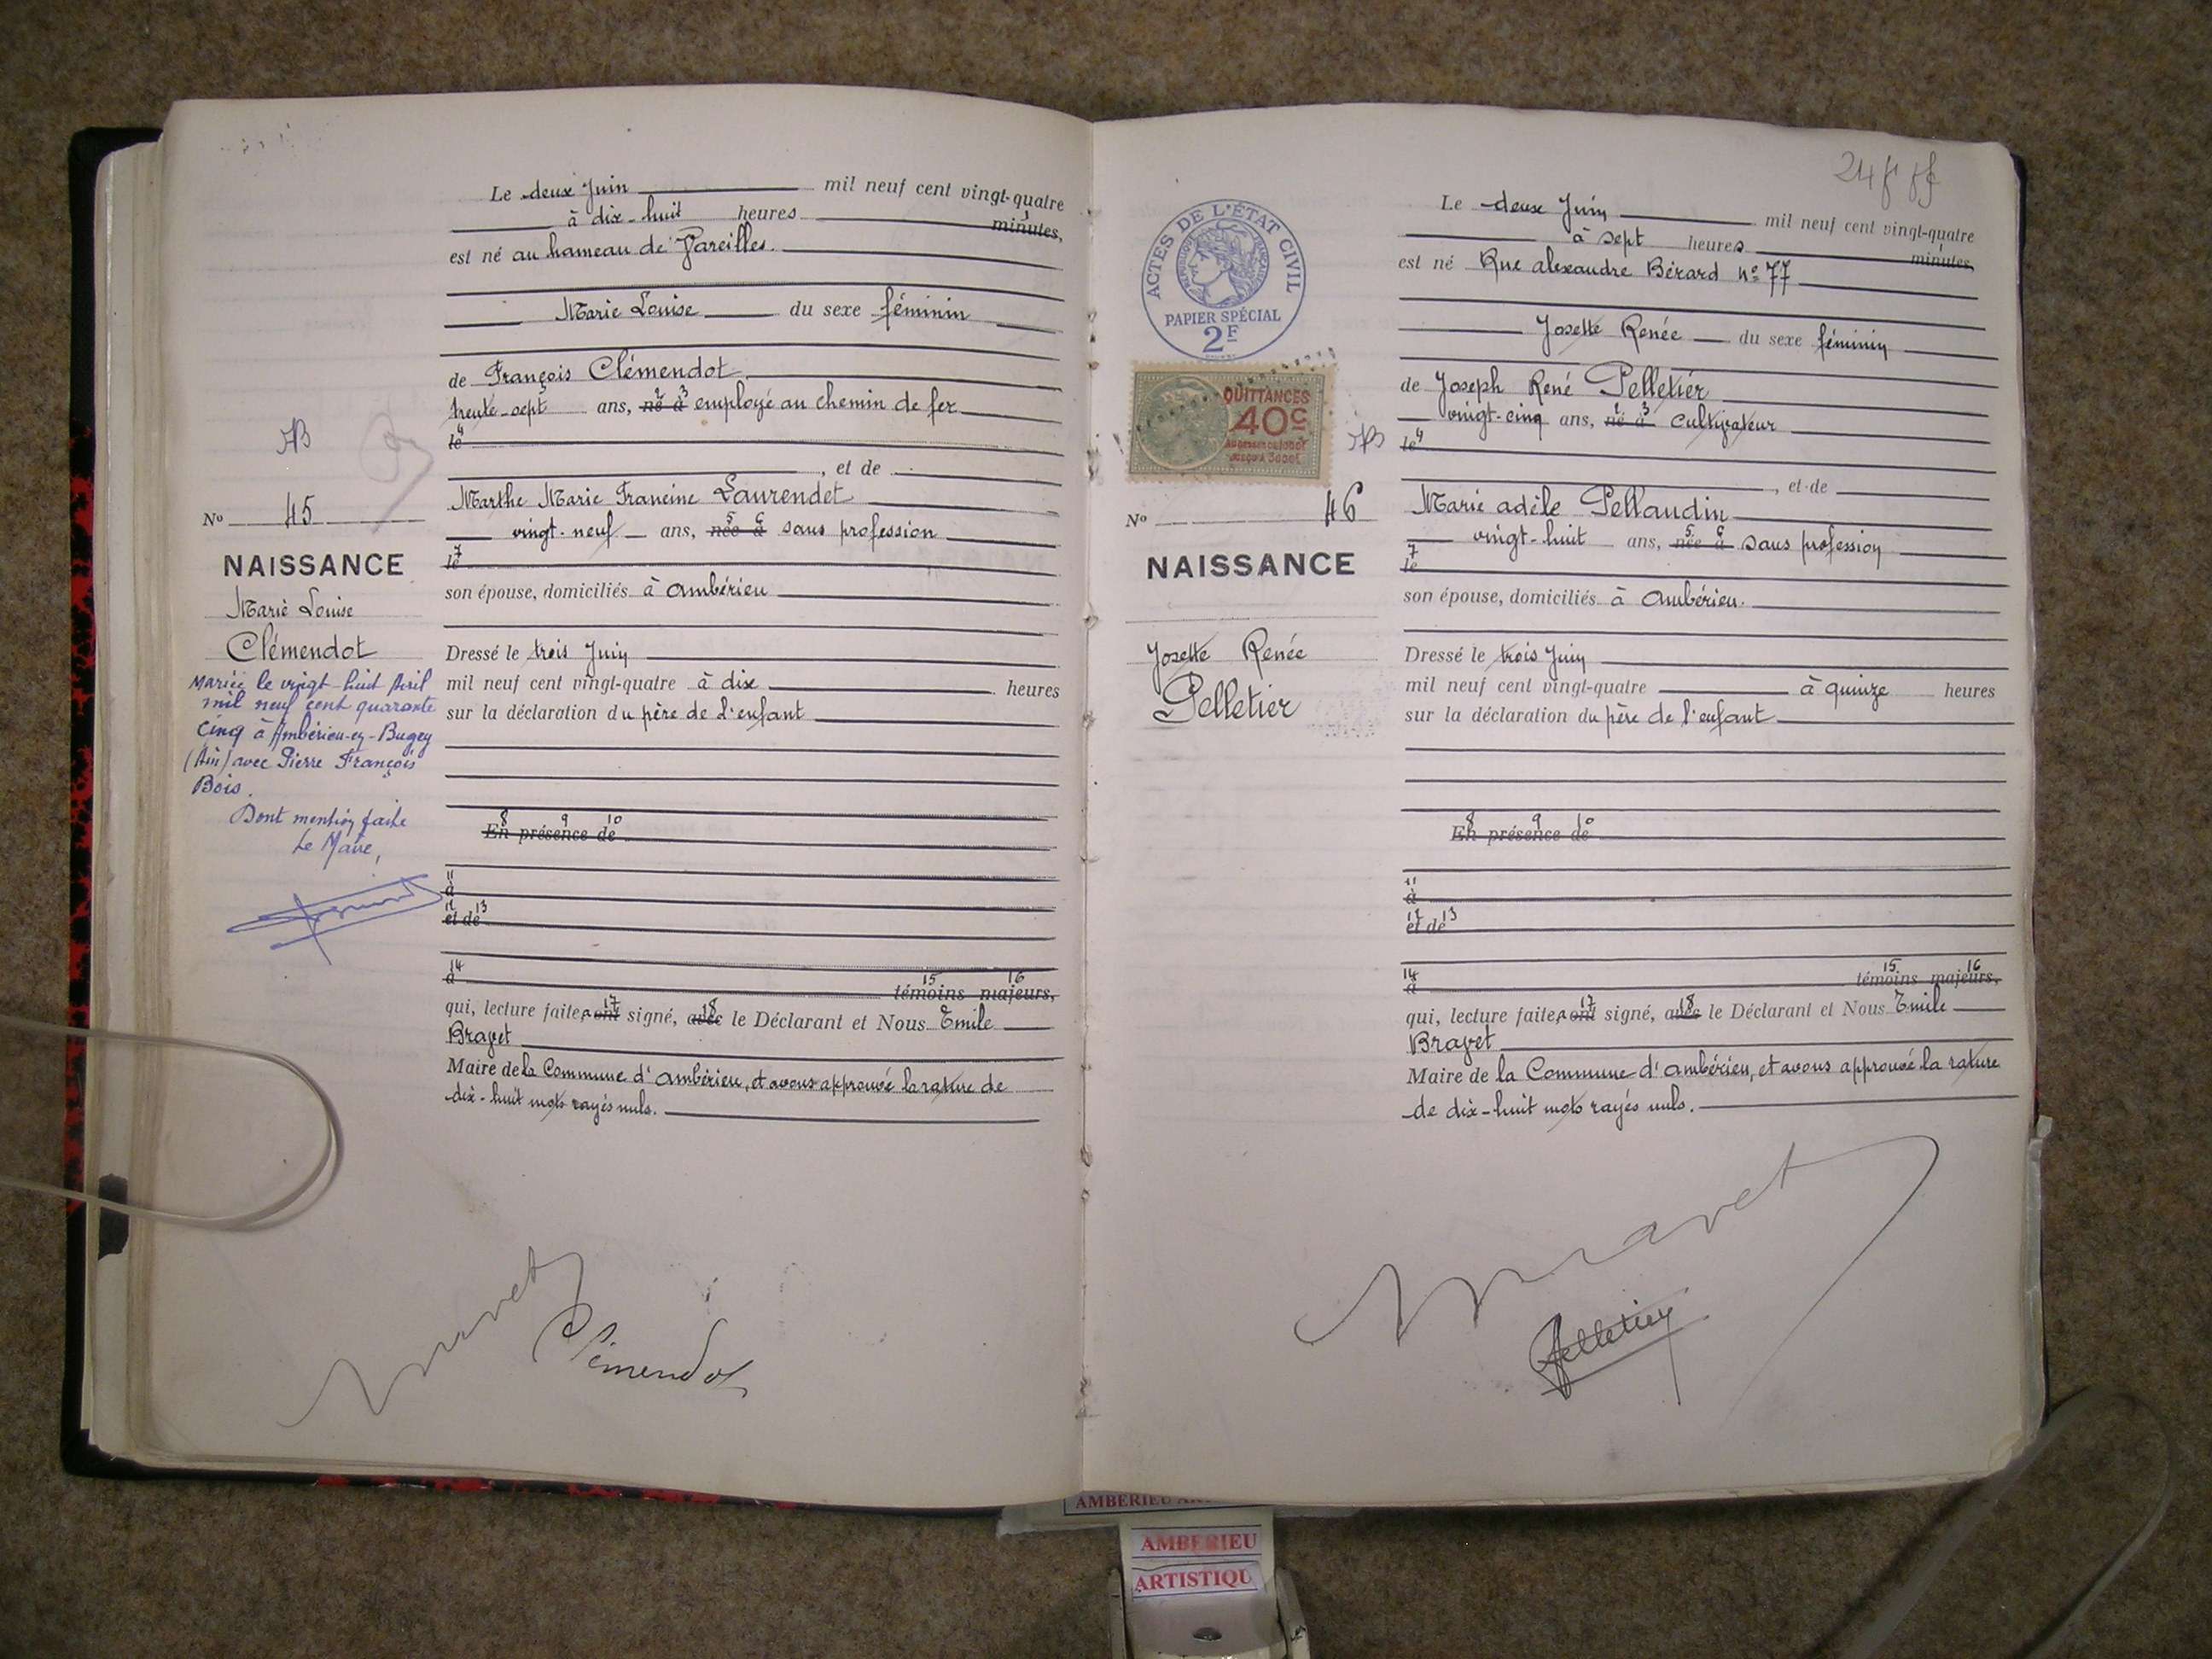 Le deux Juin mil neuf cent vingt-quatre
à dix-huit heures minutes,
est né au hameau de Vareilles.
Marie Louise du sexe féminin
de François Clémendot
trente-sept ans, né à employé au chemin de fer
le
, et de
Marthe Marie Francine Laurendet
vingt-neuf ans, née à sans profession
le
son épouse, domiciliés à Ambérieu
Dressé le trois Juin
mil neuf cent vingt-quatre à dix heures
sur la déclaration du père de l'enfant
En présence de
à
et de
à témoins majeurs,
qui, lecture faite, ont signé, avec le Déclarant et Nous Emile
Bravet
Maire de la Commune d'Ambérieu, et avons approuvé la rature de
dix-huit mots rayés nuls.
Nº 45
NAISSANCE
Marie Louise
Clémendot
Mariée le vingt-huit Avril
mil neuf cent quarante
cinq à Ambérieu-en-Bugey
(Ain) avec Pierre François
Bois.
Dont mention faite
Le Maire,
Bravet
Clémendot
24
ACTES DE L'ÉTAT CIVIL
RÉPUBLIQUE FRANÇAISE
PAPIER SPÉCIAL
2F
QUITTANCES
40c
Nº 46
NAISSANCE
Josette Renée
Pelletier
Le deux Juin mil neuf cent vingt-quatre
à sept heures minutes,
est né Rue Alexandre Bérard nº 77
Josette Renée du sexe féminin
de Joseph René Pelletier
vingt-cinq ans, né à cultivateur
le
, et de
Marie Adèle Pellaudin
vingt-huit ans, née à sans profession
le
son épouse, domiciliés à Ambérieu.
Dressé le trois Juin
mil neuf cent vingt-quatre à quinze heures
sur la déclaration du père de l'enfant
En présence de
à
et de
à témoins majeurs,
qui, lecture faite, ont signé, avec le Déclarant et Nous Emile
Bravet
Maire de la Commune d'Ambérieu, et avons approuvé la rature
de dix-huit mots rayés nuls.
Bravet
Pelletier
AMBERIEU
AMBERIEU
ARTISTIQU